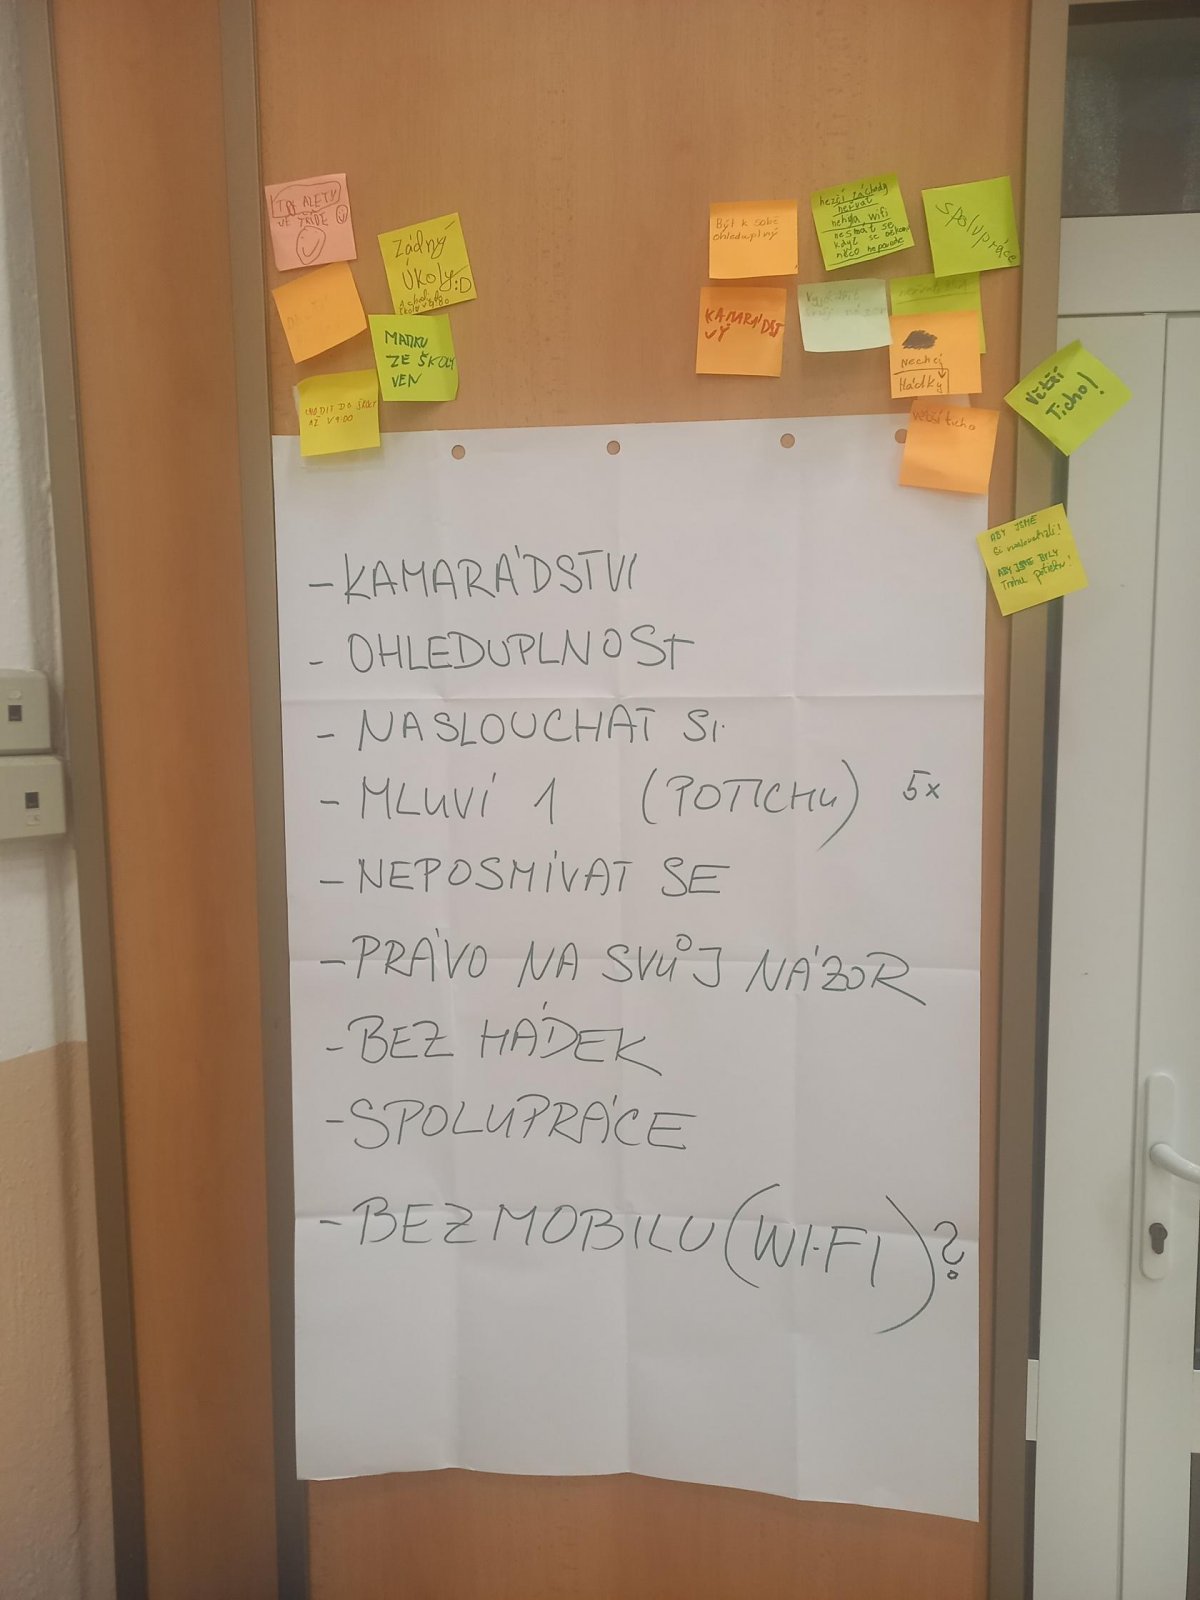 VE TŘÍDĚ
Zádný
úkoly :D
MATIKU
ZE ŠKOLY
VEN
CHODIT DO ŠKOLY
AŽ V 9:00
Být k sobě
ohleduplný
hezčí záchody
nehýbá wifi
nesmát se
když se někomu
něco nepovede
spolupráce
KAMARÁDST
VÝ
Nechci
Hádky
větší ticho
Větší
Ticho!
ABY JSME
si naslouchali!
ABY JSME BYLY
Trochu potichu!
- KAMARÁDSTVI
- OHLEDUPLNOST
- NASLOUCHAT SI
- MLUVÍ 1 (POTICHU) 5x
- NEPOSMÍVAT SE
- PRÁVO NA SVŮJ NÁZOR
- BEZ HÁDEK
- SPOLUPRÁCE
- BEZ MOBILU (WI-FI)?